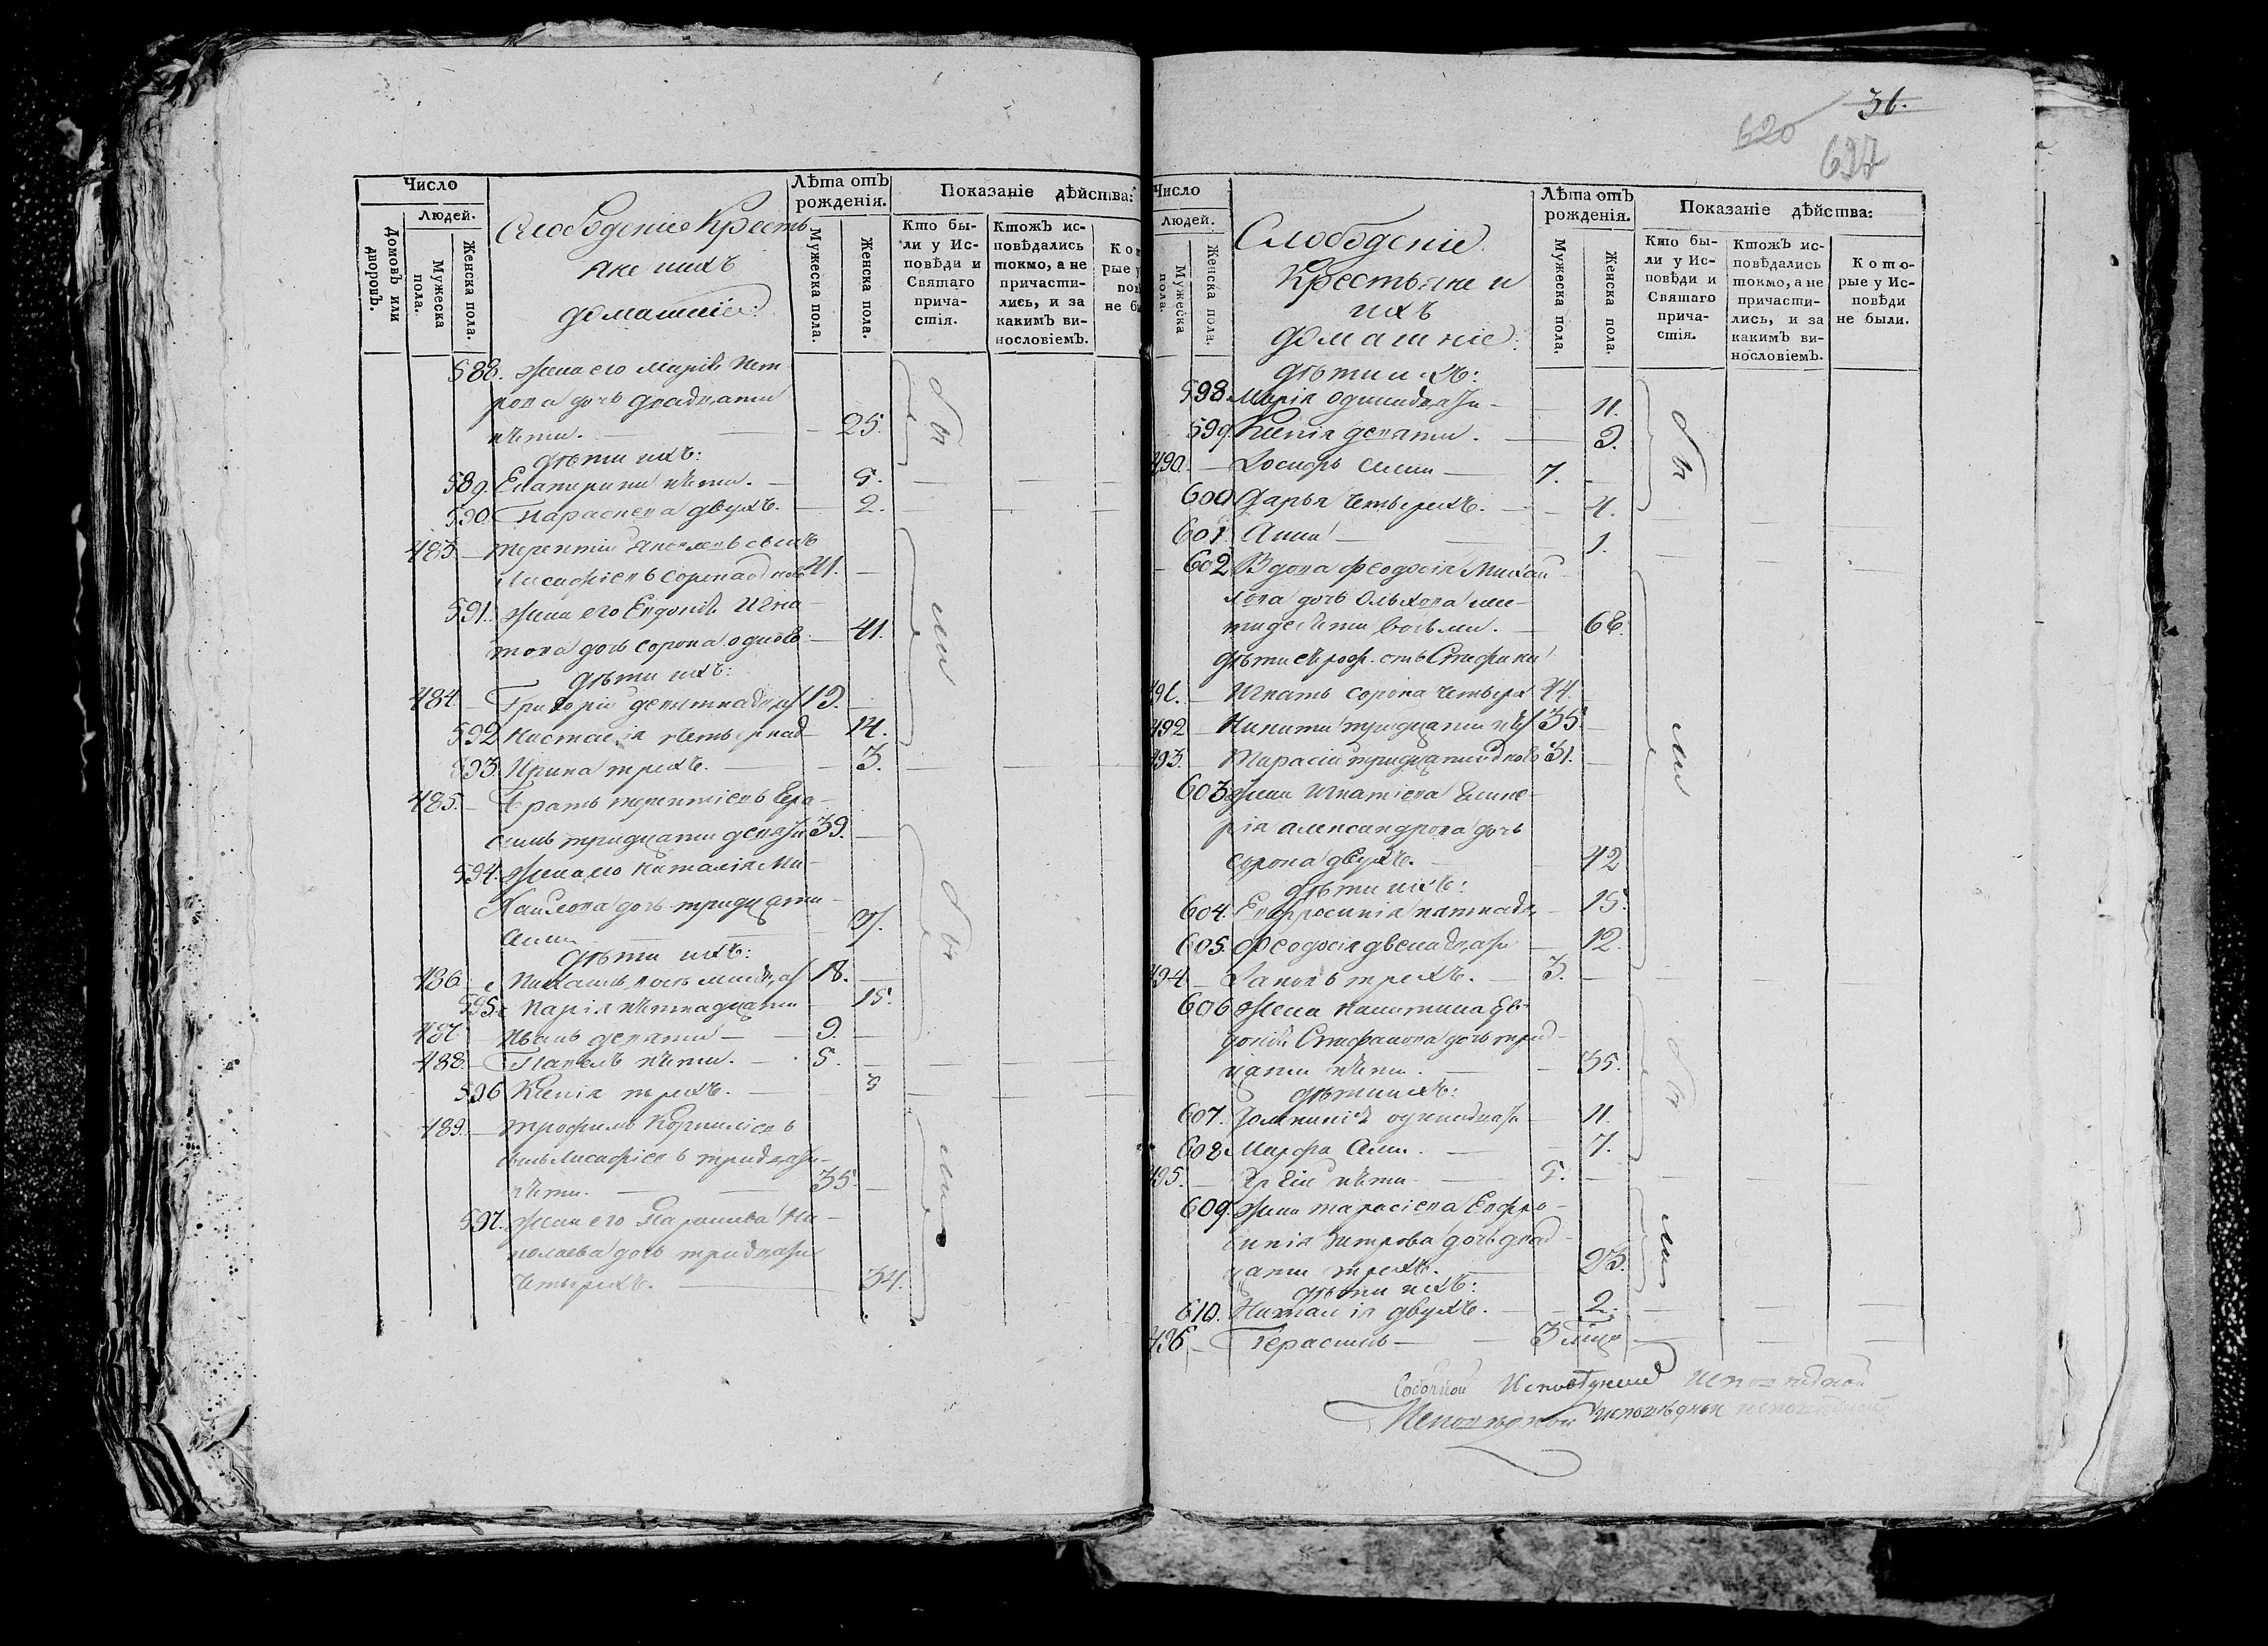 Число
Людей.
Домовъ или дворовъ.
Мужеска пола.
Женска пола.
Слободскіе Кресть
яне ихъ
домашніе:
Лѣта отъ рожденія.
Мужеска пола.
Женска пола.
Показаніе дѣйства:
Кто бы-
ли у Ис-
повѣди и
Святаго
прича-
стія.
Ктожъ ис-
повѣдались
токмо, а не
причасти-
лись, и за
какимъ ви-
нословіемъ.
588. жена его Марія Пет
рова дочь двадцати
пѣти. 25.
дѣти ихъ:
589. Екатерина пѣти. 5.
590. Параскева двухъ. 2.
483 Терентій Яковлевъ сынъ
сорока одного 41.
591. жена его Евдокія Игна
това дочь сорока одного 41.
дѣти ихъ:
484 Григорій девятнадца 19.
592 Настасія четырнад 14.
593 Ирина трехъ. 3.
485. Братъ Терентіевъ Гера
симъ тридцати девяти 39.
594. жена его Наталія Ми
хайлова дочь тридцати
семи
дѣти ихъ:
486 восмнадца 18.
595 Марія пѣтнадцати 15.
487 Иванъ девяти 9.
488. Павелъ пѣти. 5.
596 Ксенія трехъ. 3
489. Трофимъ Корниліевъ
сынъ тридцати
пѣти. 35.
597. жена его Ни
колаева дочь тридцати
четырехъ. 34.
были
31.
620
697
Число
Людей.
Мужеска пола.
Женска пола.
Слободскіе
Крестьяне и
ихъ
домашніе:
Лѣта отъ рожденія.
Мужеска пола.
Женска пола.
Показаніе дѣйства:
Кто бы-
ли у Ис-
повѣди и
Святаго
прича-
стія.
Ктожъ ис-
повѣдались
токмо, а не
причасти-
лись, и за
какимъ ви-
нословіемъ.
Кото-
рые у Ис-
повѣди
не были.
дѣти ихъ:
598 Марія одинадцати 11.
599. Ксенія девяти. 9.
490. Іосифъ семи 7.
600 Дарья четырехъ. 4.
601 Анна 1.
602 Вдова Феодосія Михаи
лова дочь
тидесяти восьми. 68.
дѣти отъ Стефана
491. Игнатъ сорока четырех 44.
492 Никита тридцати пѣ 35.
493. Тарасій тридцати одного 31.
603 жена Игнатіева
рія Александрова дочь
сорока двухъ. 42
дѣти ихъ:
604. Евфросинія пятнадц 15.
605. Феодосія двенадцати 12.
494 Яковъ трехъ. 3.
606 жена Никитина Ев
докія Стефанова дочь трид
цати пѣти. 35.
дѣти ихъ:
607. Домникія одинадцати 11.
608 Марфа семи. 7.
495. пѣти. 5.
609. жена Тарасіева Евфро
синія дочь двад
цати трехъ. 23.
дѣти ихъ:
610. Наталія двухъ. 2.
496 Герасимъ 3 мѣся
были